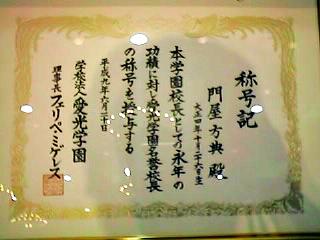 称号記
門屋方典殿
大正四年十月二十六日生
本学園校長としての永年の
功績に対し愛光学園名誉校長
の称号を授与する
平成九年六月二十日
学校法人愛光学園
理事長フェリペ・ミゲレス